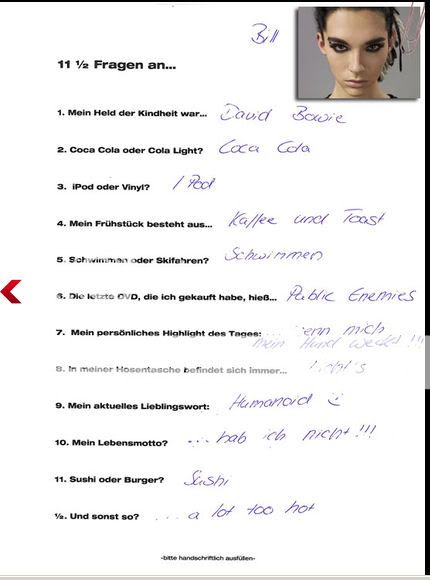 Bill
11 ½ Fragen an...
1. Mein Held der Kindheit war... David Bowie
2. Coca Cola oder Cola Light? Coca Cola
3. iPod oder Vinyl? iPod
4. Mein Frühstück besteht aus... Kaffee und Toast
5. Schwimmen oder Skifahren? Schwimmen
6. Die letzte DVD, die ich gekauft habe, hieß... Public Enemies
7. Mein persönliches Highlight des Tages: ...enn mich
mein Hund weckt !!!
8. In meiner Hosentasche befindet sich immer...
9. Mein aktuelles Lieblingswort: Humanoid
10. Mein Lebensmotto? ... hab ich nicht !!!
11. Sushi oder Burger? Sushi
½. Und sonst so? ... a lot too hot
-bitte handschriftlich ausfüllen-